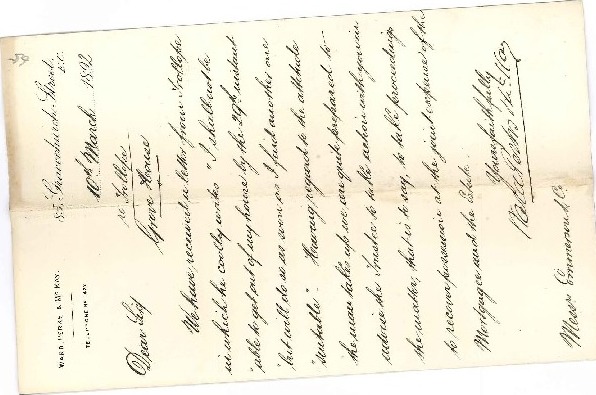 WARD, PERKS & McKAY.
TELEPHONE No.
85, Gracechurch Street,
E.C.
10th March 1892
re Trollope
Grove House
Dear Sirs
We have received a letter from Trollope
in which he coolly writes "I shall not be
"able to get out of my house by the 29th instant
"but will do so as soon as I find another one
"suitable". Having regard to the attitude
the man takes up we are quite prepared to
advise the Trustee to take action with you in
the matter, that is to say, to take proceedings
to recover possession at the joint expense of the
Mortgagee and the Estate.
Yours faithfully
Ward Perks & McKay
Messrs Emmerson & Co